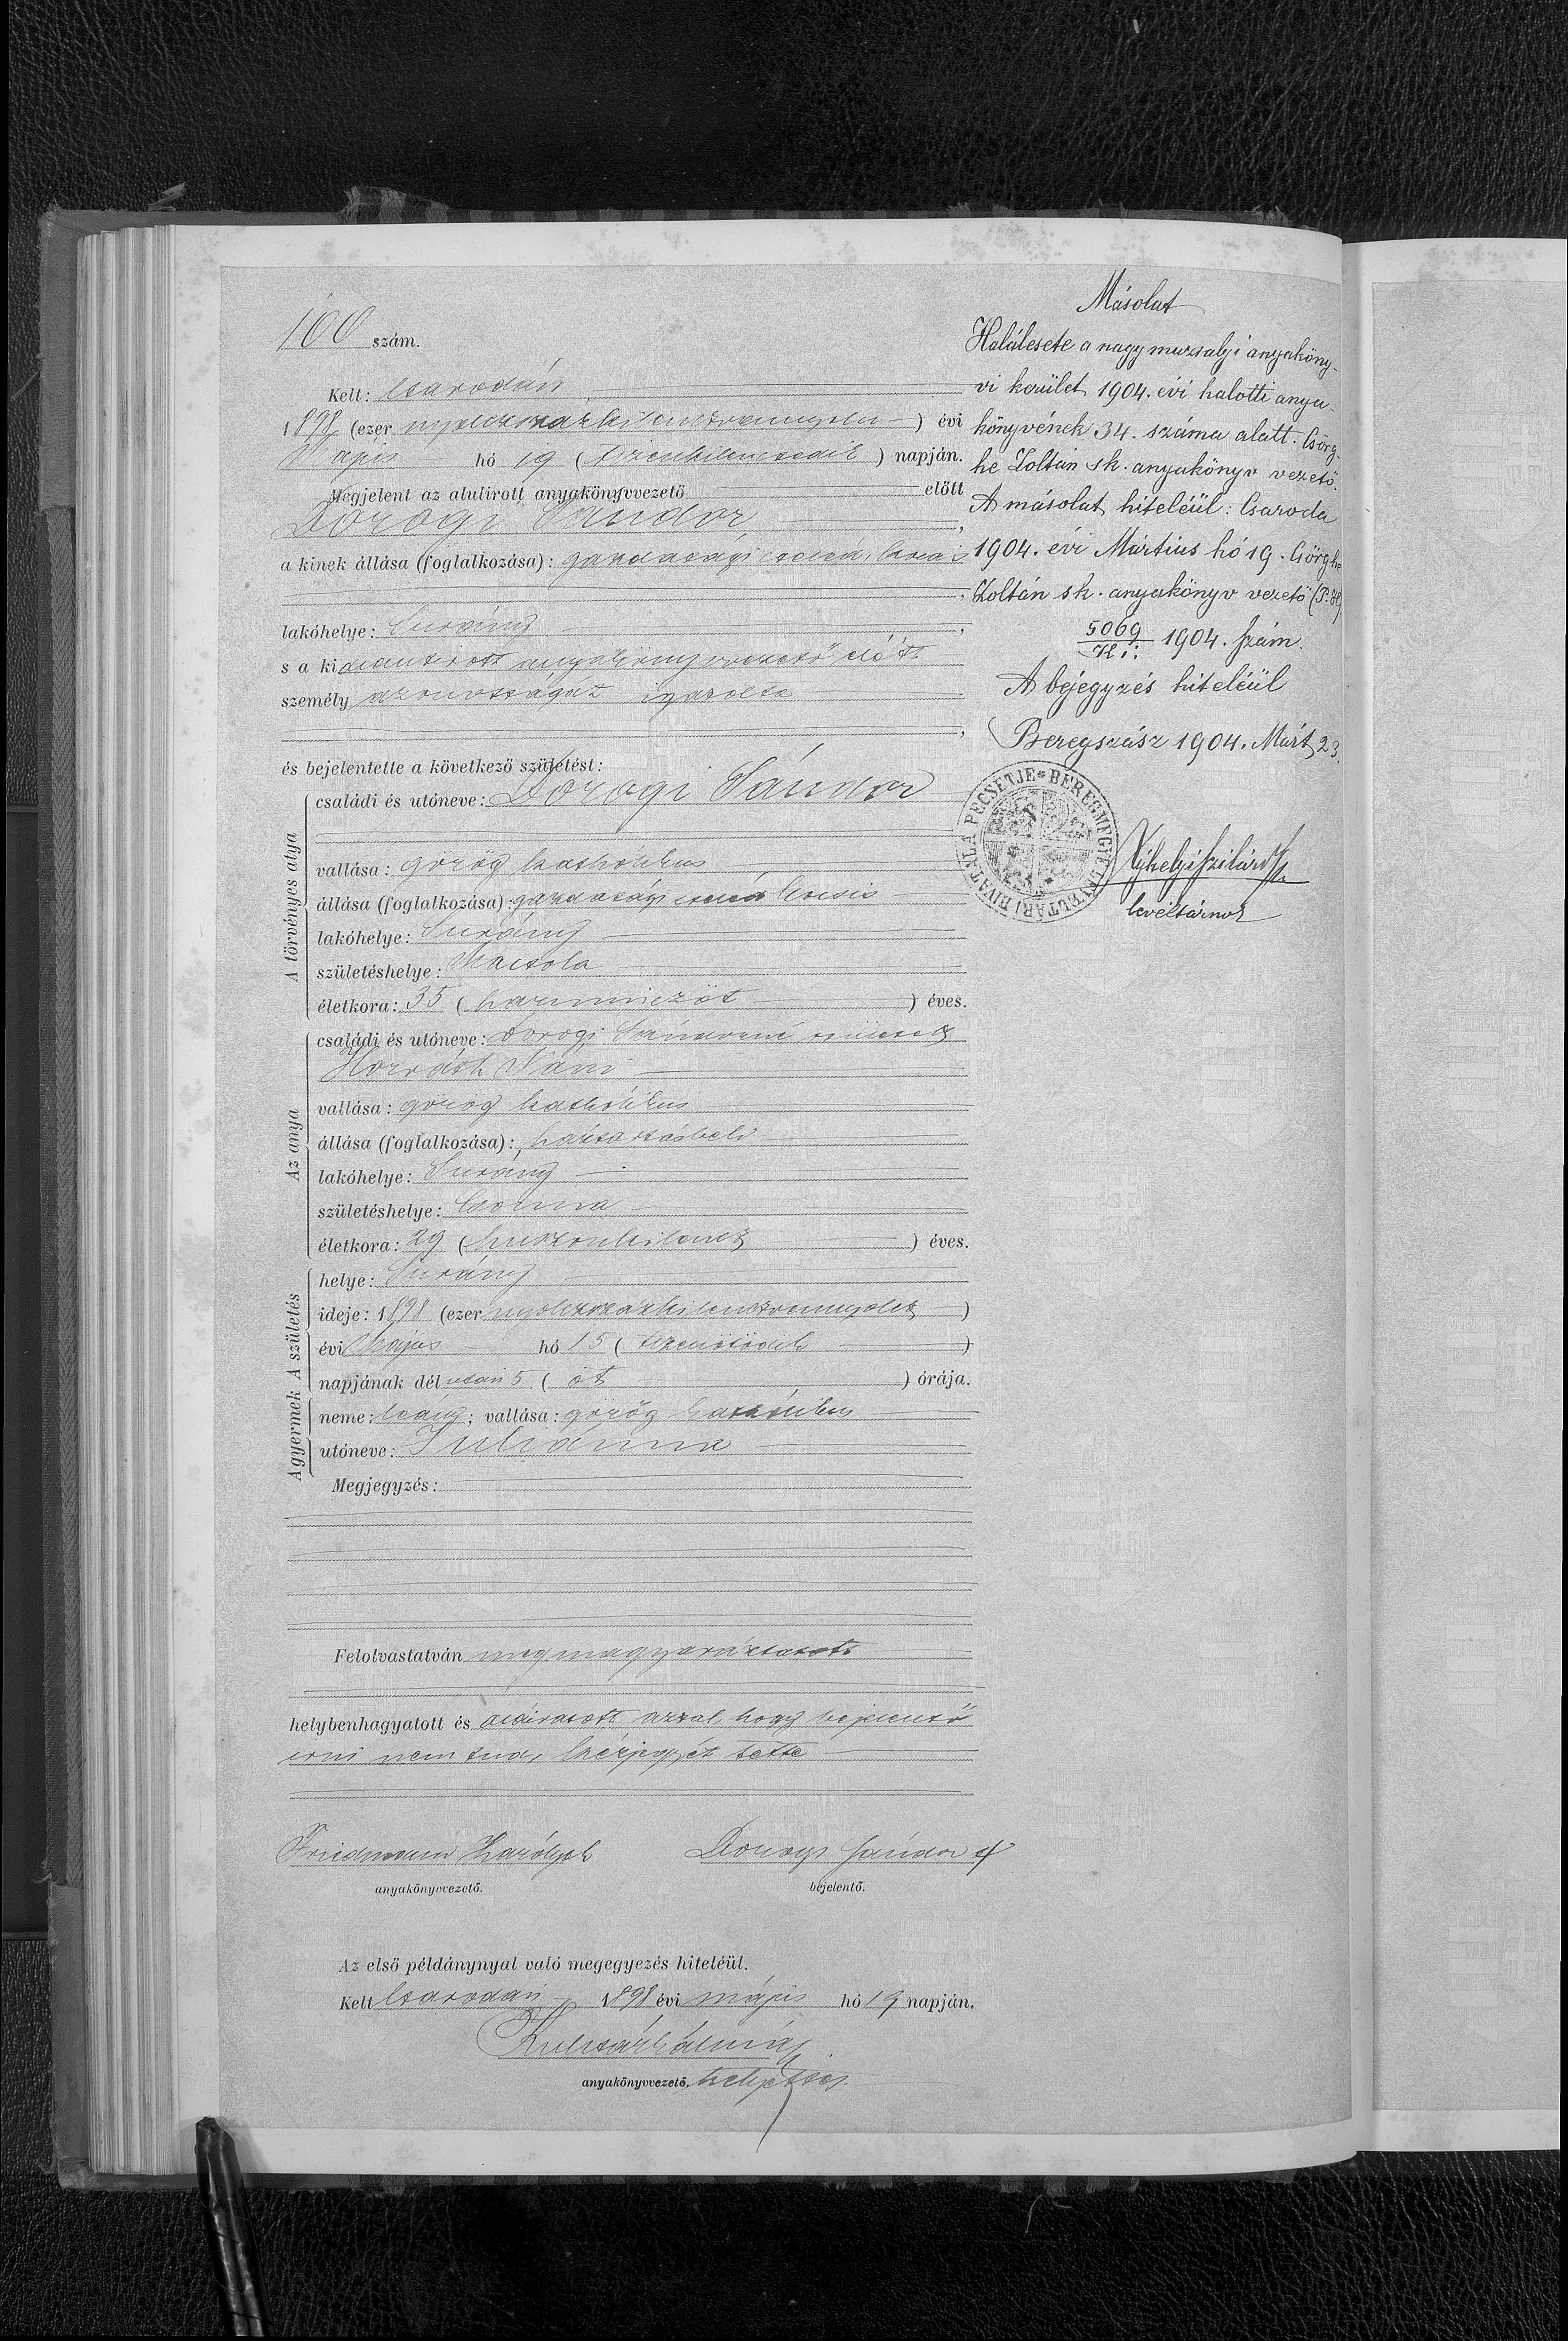 100 szám.
Kelt: Csarodán,
1898 (ezer nyolczszázkilenczvennyolcz) évi
Május hó 19 (tizenkilenczedik) napján.
Megjelent az alulirott anyakönyvvezető előtt
Dorogi Sándor,
a kinek állása (foglalkozása): gazdasági
lakóhelye: Surány,
s a ki alantirott anyakönyvvezető előtt
személyazonosságát igazolta,
és bejelentette a következő születést:
A törvényes atya
családi és utóneve: Dorogi Sándor
vallása: görög katholikus
állása (foglalkozása): gazdasági
lakóhelye: Surány
születéshelye: Macsola
életkora: 35 (harminczöt) éves.
Az anya
családi és utóneve: Dorogi Sándorné született
Horváth Náni
vallása: görög katholikus
állása (foglalkozása): háztartásbeli
lakóhelye: Surány
születéshelye: Csonna
életkora: 29 (huszonkilencz) éves.
A születés
helye: Surány
ideje: 1898 (ezer nyolczszázkilenczvennyolcz)
évi Május hó 15 (tizenötödik)
napjának délután 5 (öt) órája.
A gyermek
neme: leány; vallása: görög katholikus
utóneve: Juliánna
Megjegyzés:
Felolvastatván megmagyaráztatott
helybenhagyatott és aláiratott azzal, hogy bejelentő
irni nem tud, kézjegyét tette
Friedmann Károly sk Dorogi Sándor +
anyakönyvvezető. bejelentő.
Az első példánynyal való megegyezés hiteléül.
Kelt Csarodán 1898 évi május hó 19 napján.
Kulcsár Kálmán
anyakönyvvezető. helyettes.
Másolat
Halálesete a nagymuzsalyi anyaköny-
vi kerület 1904. évi halotti anya-
könyvének 34. száma alatt. Csörg-
he Zoltán sk. anyakönyv vezető.
A másolat hiteléül: Csaroda
1904. évi Mártius hó 19. Csörghe
Zoltán sk. anyakönyv vezető (P. H.)
5069/Ki: 1904. szám.
A bejegyzés hiteléül
Beregszász 1904. Márt 23.
BEREGMEGYE LEVÉLTÁRI HIVATALA PECSÉTJE
Ujhelyi Szilárd
levéltárnok